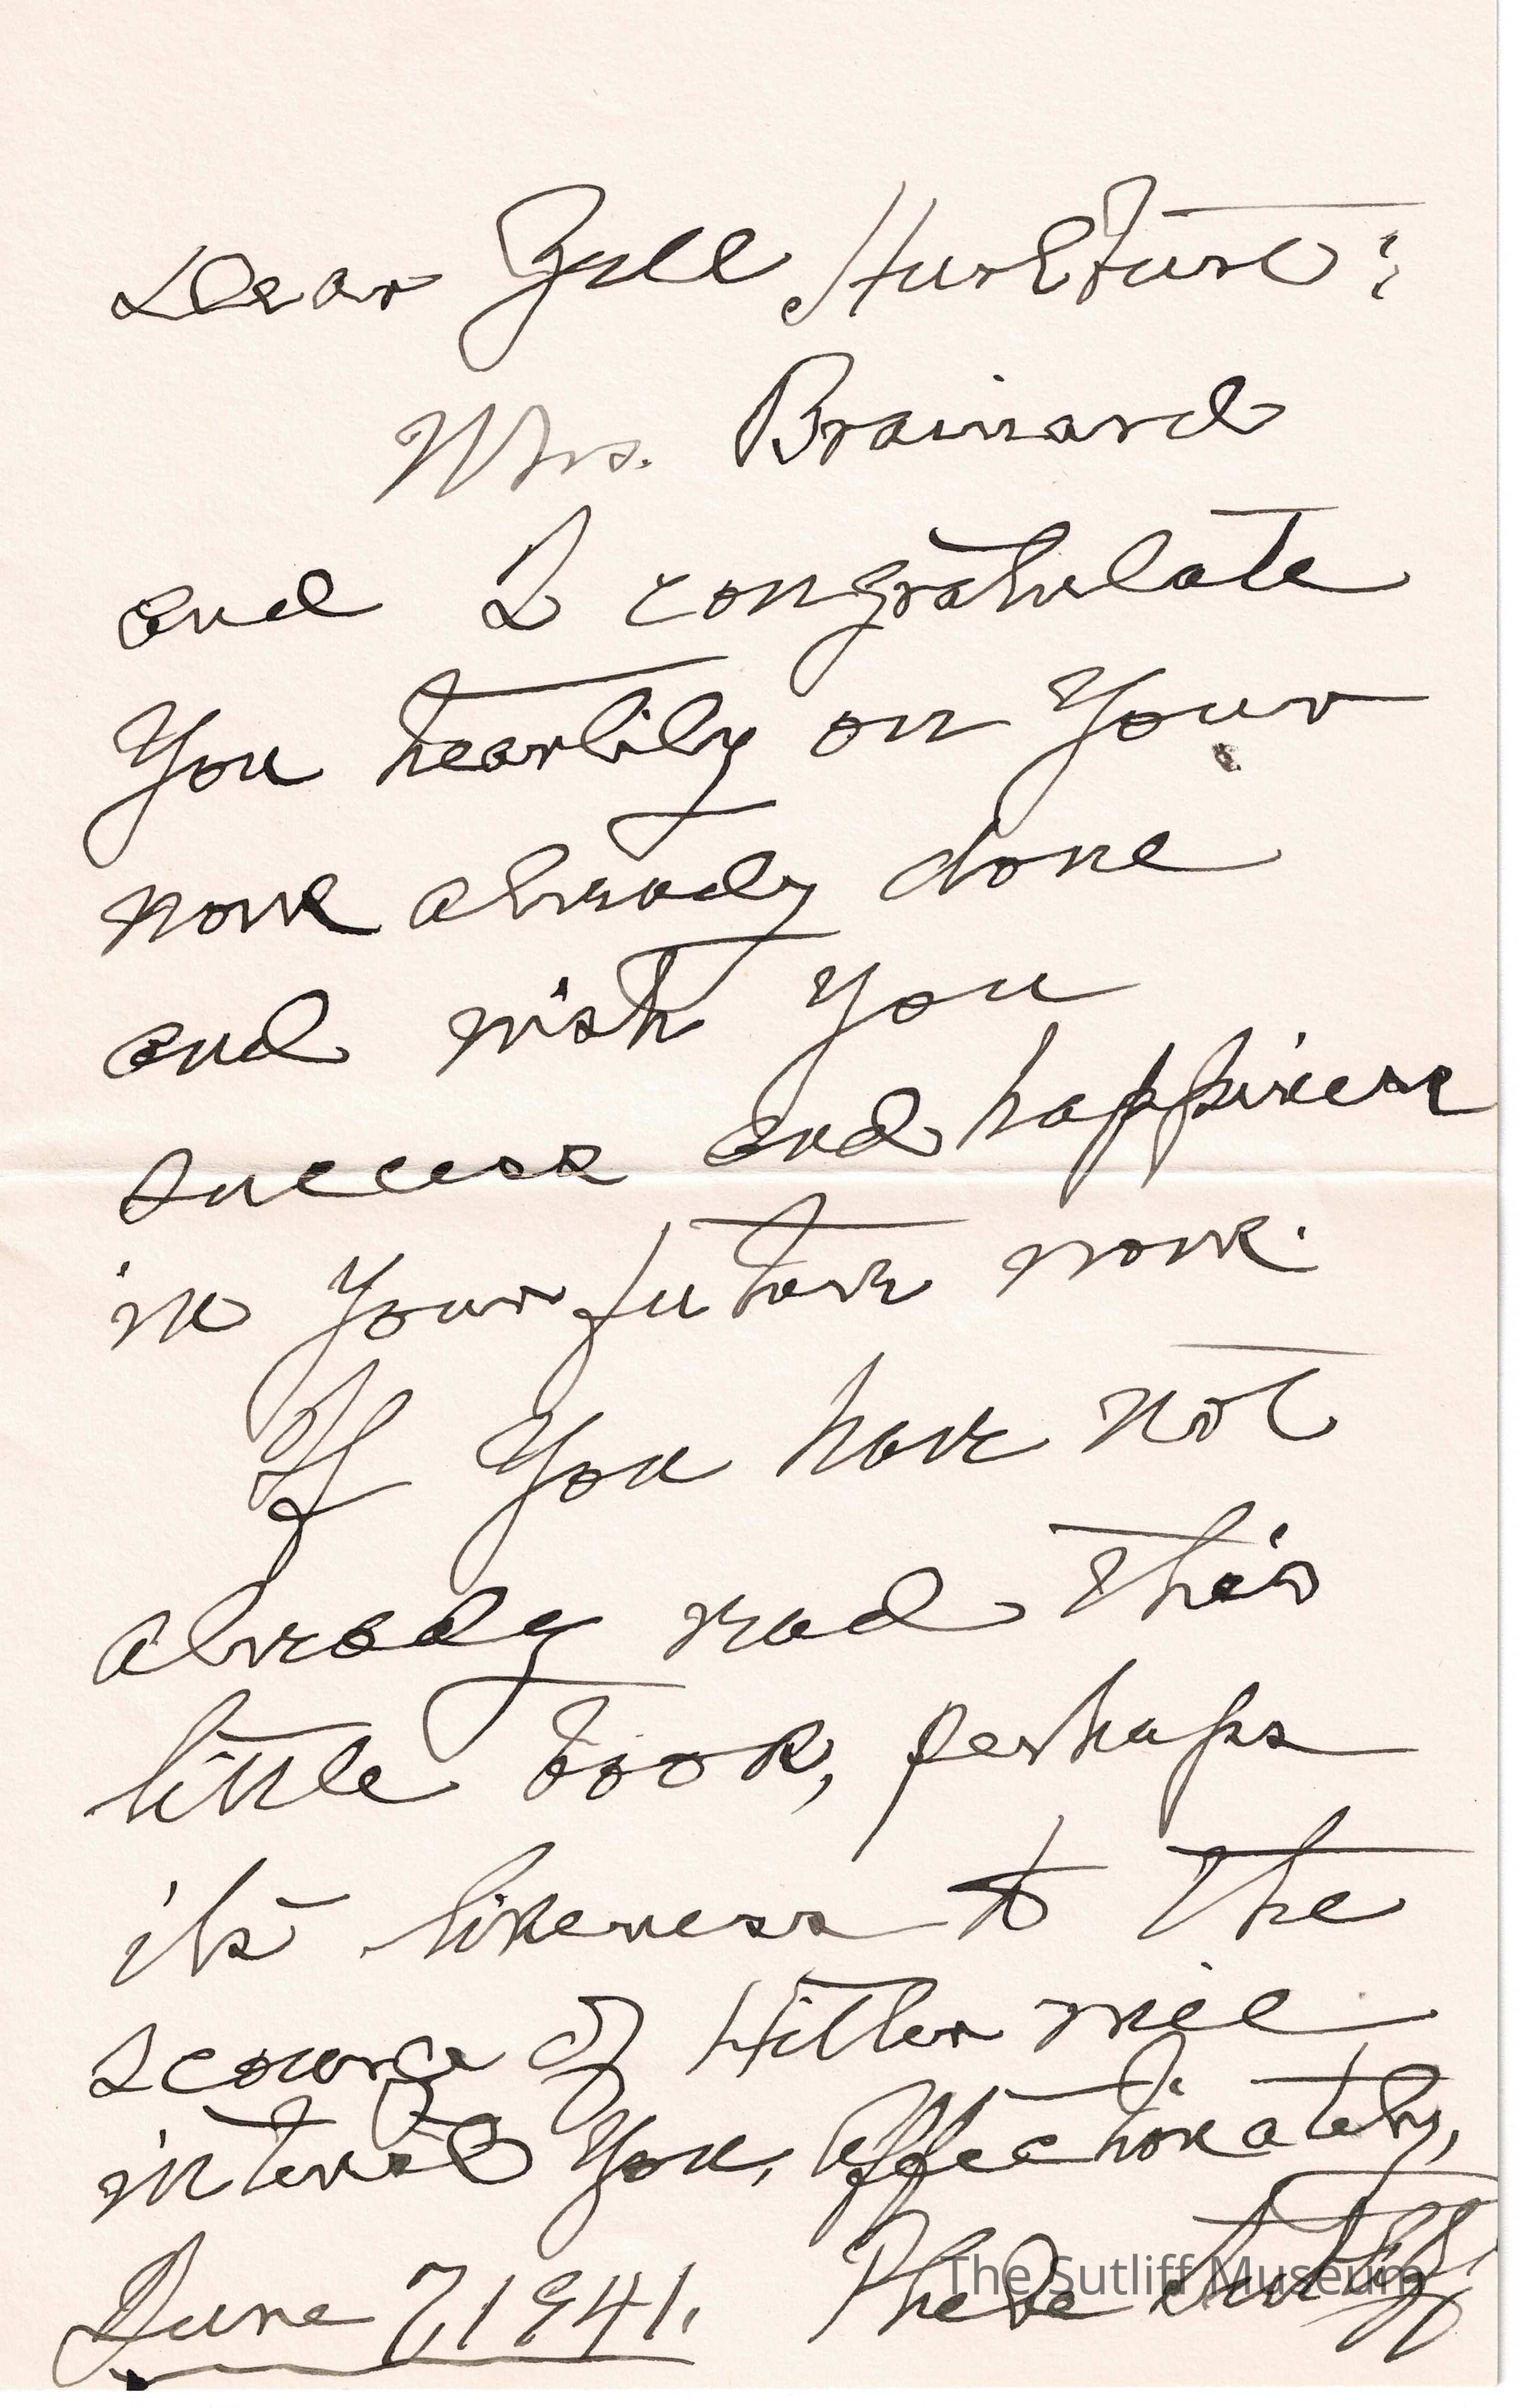 Dear
Mrs. Brainard
and I congratulate
you heartily on your
work already done
and wish you
success and happiness
in your future work.
If you have not
already read this
little book, perhaps
its likeness to the
scourge of Hitler will
interest you. Affectionately,
June 7, 1941. Phebe Sutliff
The Sutliff Museum